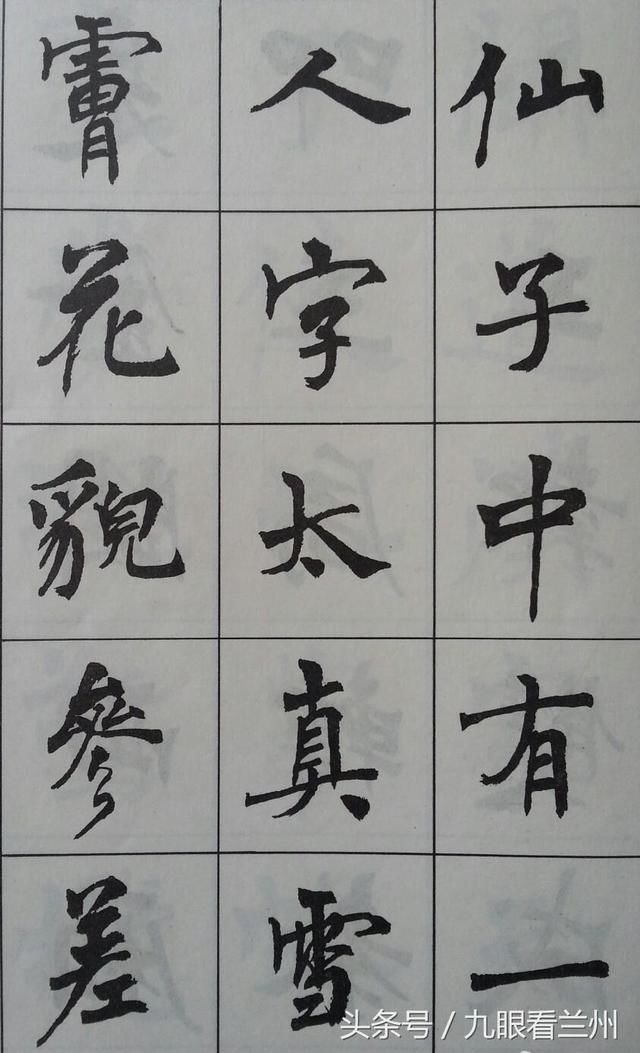 仙子中有一
人字太真雪
膚花貌參差
头条号 / 九眼看兰州